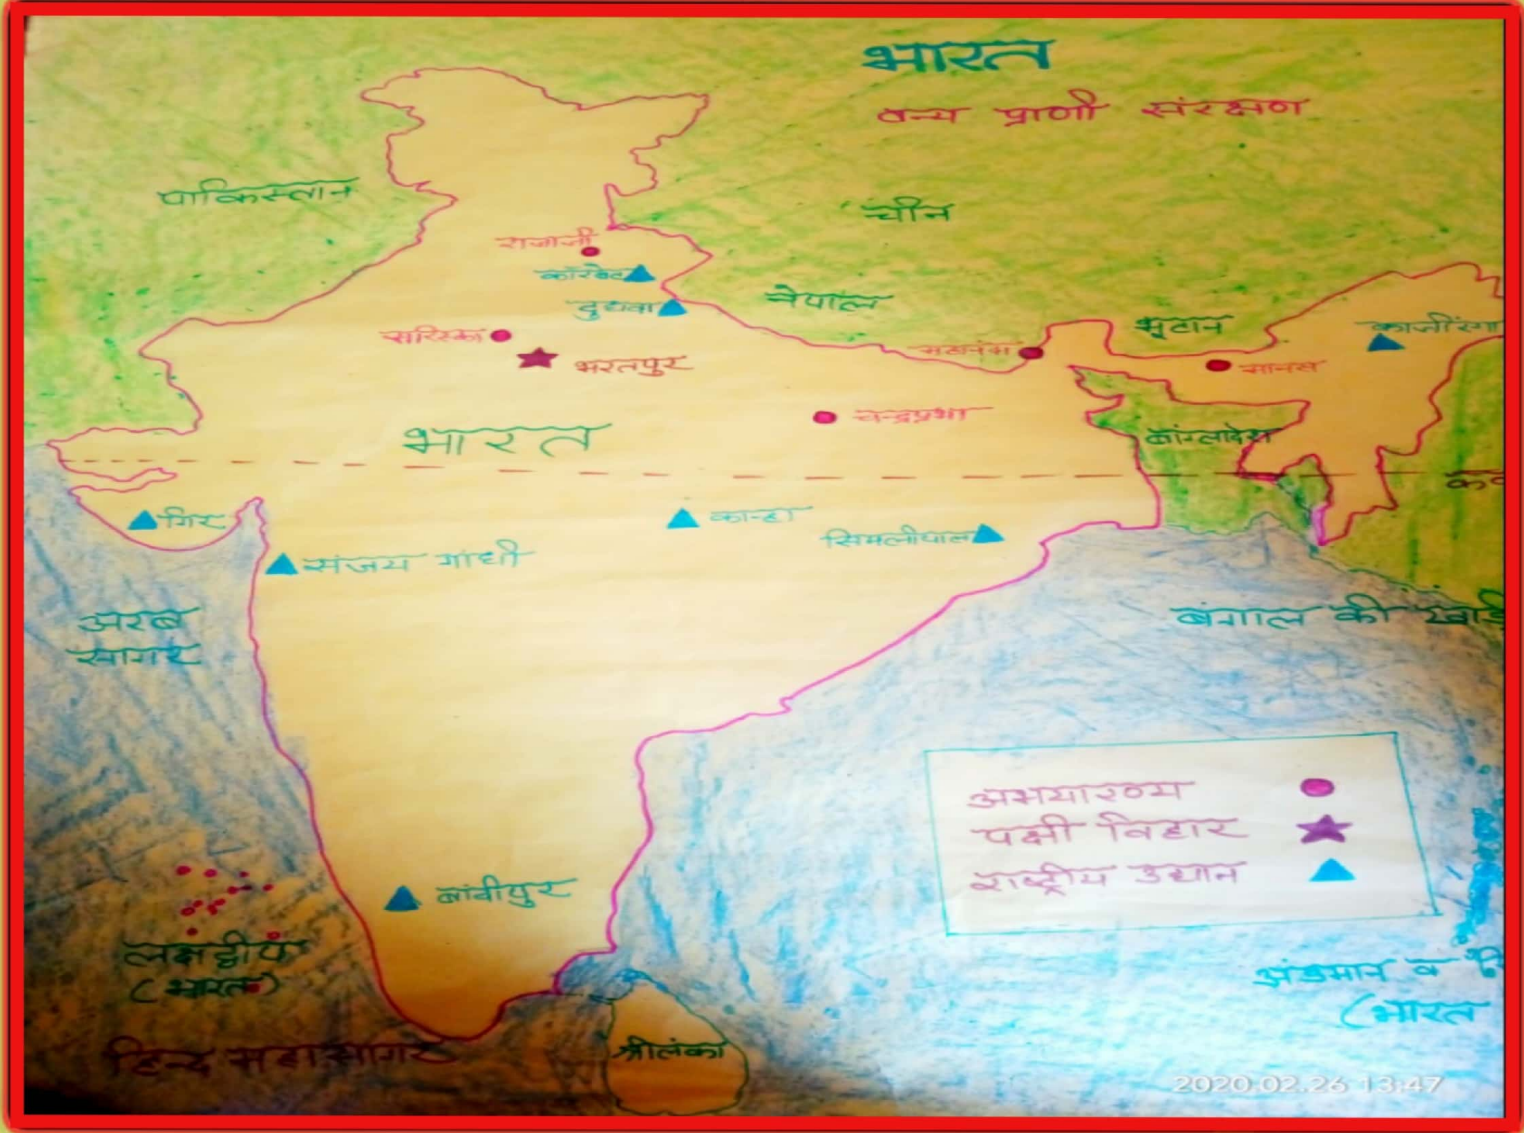 भारत
वन्य प्राणी संरक्षण
पाकिस्तान
चीन
राजाजी
कॉरबेट
नेपाल
दुधवा
भूटान
काजीरंगा
सरिस्का
भरतपुर
मानस
चन्द्रप्रभा
भारत
बांग्लादेश
गिर
कान्हा
सिमलीपाल
संजय गांधी
अरब
सागर
बंगाल की खाड़ी
अभयारण्य
पक्षी विहार
राष्ट्रीय उद्यान
बांदीपुर
लक्षद्वीप
(भारत)
अंडमान व
(भारत
हिन्द महासागर
श्रीलंका
2020.02.26 13:47